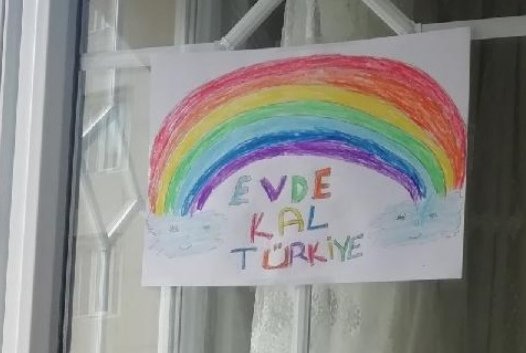 EVDE
KAL
TÜRKİYE